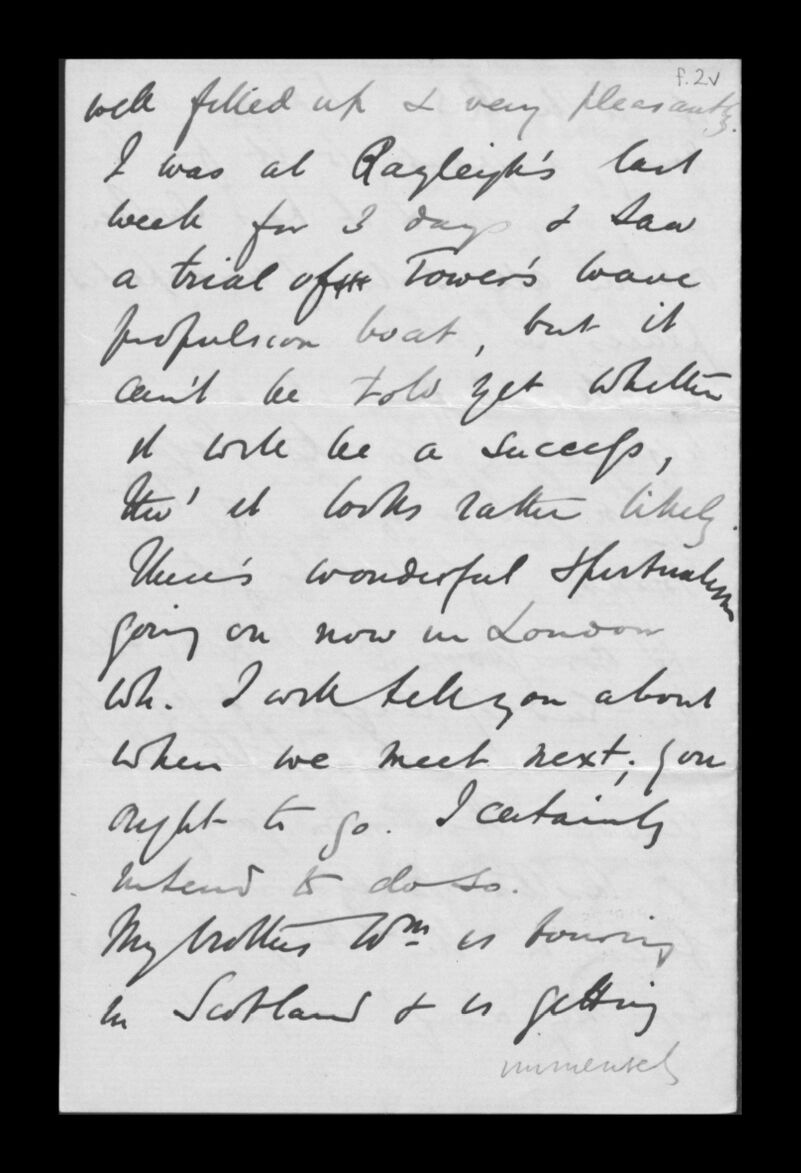 f. 2v
well filled up & very pleasantly.
I was at Rayleigh's last
week for 3 days & saw
a trial of Tower's wave
propulsion boat, but it
can't be told yet whether
it will be a success,
tho' it looks rather likely.
There's wonderful spiritualism
going on now in London
wh. I will tell you about
when we meet next; you
ought to go. I certainly
intend to do so.
My brother Wm is touring
in Scotland & is getting
immensely